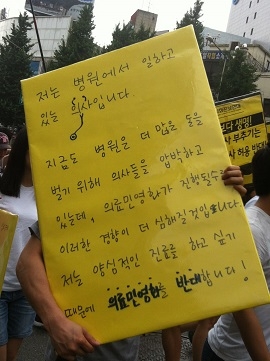 저는 병원에서 일하고
있는 의사입니다.
지금도 병원을 더 많을 돈을
벌기 위해 의사들을 압박하고
있는데, 의료민영화가 진행될수록
이러한 경향이 더 심해질것입니다
저는 양심적인 진료를 하고 싶기
때문에 의료민영화를 반대합니다!
보다 생명